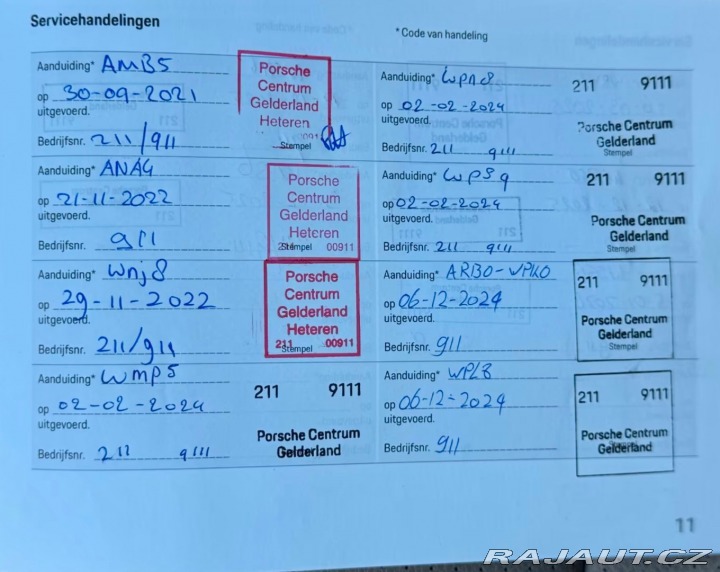 Servicehandelingen
* Code van handeling
Aanduiding* AMB5
op 30-09-2021
uitgevoerd.
Bedrijfsnr. 211/911
Porsche
Centrum
Gelderland
Heteren
Stempel
Aanduiding* ANAG
op 21-11-2022
uitgevoerd.
Bedrijfsnr. 911
Porsche
Centrum
Gelderland
Heteren
211 00911
Stempel
Aanduiding* WNJ8
op 29-11-2022
uitgevoerd.
Bedrijfsnr. 211/911
Porsche
Centrum
Gelderland
Heteren
211 00911
Stempel
Aanduiding* WMP5
op 02-02-2024
uitgevoerd.
Bedrijfsnr. 211 9111
211 9111
Porsche Centrum
Gelderland
Aanduiding* WPN8
op 02-02-2024
uitgevoerd.
Bedrijfsnr. 211 9111
211 9111
Porsche Centrum
Gelderland
Stempel
Aanduiding* WPS9
op 02-02-2024
uitgevoerd.
Bedrijfsnr. 211 9111
211 9111
Porsche Centrum
Gelderland
Stempel
Aanduiding* ARB0-WPK0
op 06-12-2024
uitgevoerd.
Bedrijfsnr. 911
211 9111
Porsche Centrum
Gelderland
Stempel
Aanduiding* WPL8
op 06-12-2024
uitgevoerd.
Bedrijfsnr. 911
211 9111
Porsche Centrum
Gelderland
Stempel
11
RAJAUT.CZ